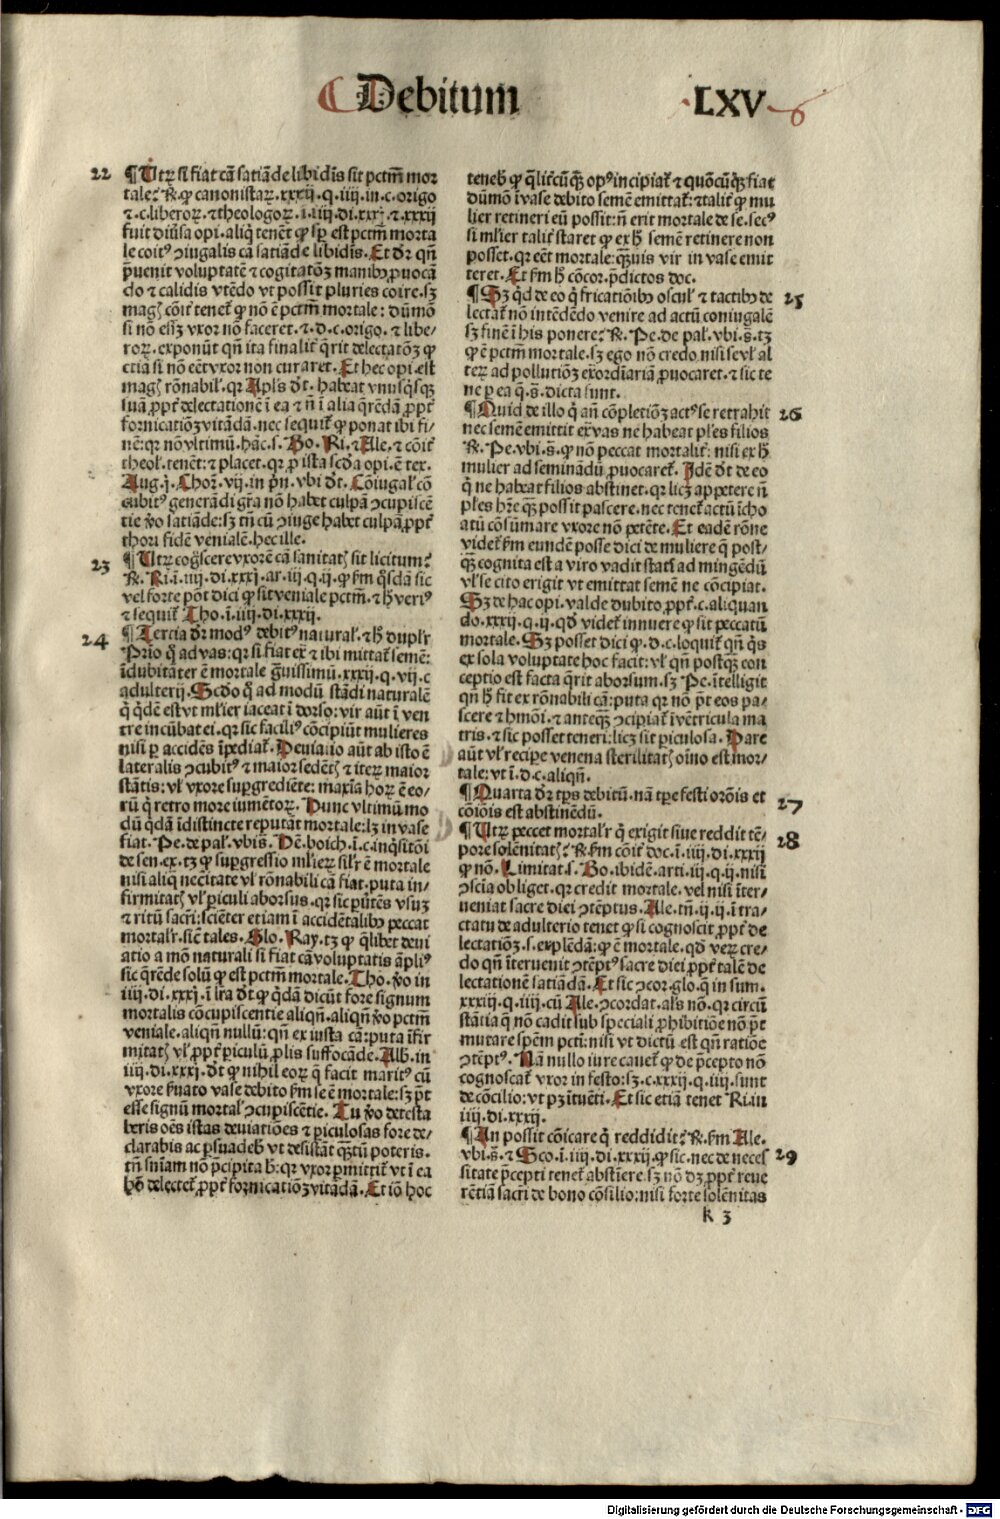 Debitum
LXV
22 ¶Utrꝝ si fiat cā satiādе libidīs sit pctm̄ mor
tale: ℟. ꝙ canonistaꝝ. xxxij. q. iiij. in. c. origo
⁊. c. liberoꝝ. ⁊ theologoꝝ. i. iiij. di. xxxj. ⁊ xxxij
fuit diūsa opi. aliq̄ tenēt ꝙ sp̄ est pctm̄ morta
le coitꝰ ↄiugalis cā satiāde libidīs. Et dr̄ qn̄
p̄uenit voluptatē ⁊ cogitatōꝫ manibꝫ ꝓuocā
do ⁊ calidis vtēdo vt possit pluries coire. sꝫ
magꝭ cōit̄ tenet̄ ꝙ nō ē pctm̄ mortale: dūmō
si nō essꝫ vxor nō faceret. ⁊. d. c. origo. ⁊ libe-
roꝝ. exponūt qn̄ ita finalit̄ q̄rit delectatōꝫ ꝙ
etiā si nō eēt vxor non curaret. Et hec opi. est
magꝭ rōnabil̄. qꝛ Apl̄s dt̄. habeat vnusq̄sqꝫ
suā ꝓpt̄ delectationē ī ea ⁊ n̄ ī alia q̄rēdā ꝓpt̄
fornicatiōꝫ vitādā. nec sequit̄ ꝙ ponat ibi fi/
nē: qꝛ nō vltimū. hāc. s. Bo. Ri. ⁊ Ale. ⁊ cōit̄
theol̄. tenēt: ⁊ placet. qꝛ ꝓ ista scd̄a opi. ē tex.
Aug. j. Choꝝ. vij. in pn̄. vbi dt̄. Cōiugal̄ cō
cubitꝰ generādi gr̄a nō habet culpā ↄcupiscē
tie ꝟo satiāde: sꝫ tn̄ cū ↄiuge habet culpā ꝓpt̄
thori fidē venialē. hec ille.
23 ¶Utrꝝ coḡscere vxorē cā sanitatꝭ sit licitum:
℟. Ri. ī. iiij. di. xxxj. ar. iij. q. ij. ꝙ fm̄ q̄sdā sic
vel forte pōt dici ꝙ sit veniale pctm̄. ⁊ h̄ veriꝰ
⁊ sequit̄ Tho. ī. iiij. di. xxxij.
24 ¶Tercia dr̄ modꝰ debitꝰ natural̄. ⁊ h̄ dupl̄r
Prio q̄ ad vas: qꝛ si fiat ex̄ ⁊ ibi mittat̄ semē:
īdubitāter ē mortale gͣuissimū. xxxij. q. vij. c
adulterij. Scd̄o q̄ ad modū stādi naturalē
q̄ q̄dē est vt ml̄ier iaceat ī dorso: vir aūt ī ven
tre incūbat ei. qꝛ sic faciliꝰ cōcipiūt mulieres
nisi ꝑ accidēs īpediat̄. Deuiatio aūt ab isto ē
lateralis ↄcubitꝰ ⁊ maior sedētꝭ ⁊ iteꝝ maior
stātis: vl̄ vxore suꝑgrediēte: maxīa hoꝝ ē eo/
rū q̄ retro more iumētoꝝ. Hunc vltimū mo
dū q̄dā īdistincte reputāt mortale: lꝫ in vase
fiat. Pe. de pal. vbi s̄. Dē. boich. ī. c. inq̄sitōi
de sen. ex. tꝫ ꝙ suꝑgressio ml̄ieꝝ sil̄r ē mortale
nisi aliq̄ necītate vl̄ rōnabili cā fiat. puta in/
firmitatꝭ vl̄ ꝑiculi aborsus. qꝛ sic ꝑūtēs vsuꝫ
⁊ ritū sacr̄i: sciēter etiam ī accidētalibꝫ peccat
mortal̄r. sic̄ tales. Glo. Ray. tꝫ ꝙ q̄libet deui
atio a mō naturali si fiat cā voluptatis āpliꝰ
sic q̄rēde solū ꝙ est pctm̄ mortale. Tho. ꝟo in
iiij. di. xxxj. ī lr̄a dt̄ ꝙ q̄dā dicūt fore signum
mortalis cōcupiscentie aliqn̄. aliqn̄ ꝟo pctm̄
veniale. aliqn̄ nullū: qn̄ ex iusta cā: puta īfir
mitatꝭ vl̄ ꝓpt̄ ꝑiculū ꝓlis suffocāde. Alb. in
iiij. di. xxxj. dt̄ ꝙ nihil eoꝝ q̄ facit maritꝰ cū
vxore ẜuato vase debito fm̄ se ē mortale: sꝫ pt̄
esse signū mortal̄ ↄcupiscētie. Tu ꝟo detesta
beris oēs istas deuiatiōes ⁊ ꝑiculosas fore de/
clarabis ac ꝑsuadeb̄ vt desistāt qꝫtū poteris.
tn̄ sn̄iam nō p̄cipita h̄: qꝛ vxor ꝑmittit̄ vt ī ea
hō delectet̄ ꝓpt̄ fornicatiōꝫ vitādā. Et iō hoc
teneb̄ ꝙ q̄litcūqꝫ opꝰ incipiat̄ ⁊ quōcūqꝫ fiat
dūmō ī vase debito semē emittat̄: ⁊ talit̄ ꝙ mu
lier retineri eū possit: n̄ erit mortale de se. secꝰ
si ml̄ier talit̄ staret ꝙ ex h̄ semē retinere non
posset. qꝛ eēt mortale: qꝫuis vir in vase emit
teret. Et fm̄ h̄ cōcor. p̄dictos doc.
25 ¶Sꝫ qd̄ de eo q̄ fricatiōibꝫ oscul̄ ⁊ tactibꝫ de
lectat̄ nō intēdēdo venire ad actū coniugalē
sꝫ finē ī his ponere: ℟. Pe. de pal. vbi. s̄. tꝫ
ꝙ ē pctm̄ mortale. sꝫ ego nō credo nisi se vl̄ al
teꝝ ad pollutiōꝫ exordīariā ꝓuocaret. ⁊ sic te
ne ꝑ ea q̄. s̄. dicta sunt.
26 ¶Quid de illo q̄ an̄ cōpletiōꝫ actꝰ se retrahit
nec semē emittit ex̄ vas ne habeat pl̄es filios
℟. Pe. vbi. s̄. ꝙ nō peccat mortalit̄: nisi ex h̄
mulier ad seminādū ꝓuocaret̄. Idē dt̄ de eo
q̄ ne habeat filios abstinet. qꝛ licꝫ appetere n̄
pl̄es hr̄e qꝫ possit pascere. nec tenet̄ actū īcho
atū cōsūmare vxore nō petēte. Et eadē rōne
videt̄ fm̄ eundē posse dici de muliere q̄ post/
qꝫ cognita est a viro vadit stati᷑ ad mingēdū
vl̄ se cito erigit vt emittat semē ne cōcipiat.
Sꝫ de hac opi. valde dubito ꝓpt̄. c. aliquan
do. xxxij. q. ij. qd̄ videt̄ innuere ꝙ sit peccatū
mortale. Sꝫ posset dici ꝙ. d. c. loquit̄ qn̄ q̄s
ex sola voluptate hoc facit: vl̄ qn̄ postqꝫ con
ceptio est facta q̄rit aborsum. sꝫ Pe. ītelligit
qn̄ h̄ fit ex rōnabili cā: puta qꝛ nō pt̄ eos pa/
scere ⁊ hmōi. ⁊ anteqꝫ ↄcipiat̄ ī vētricula ma
tris. ⁊ sic posset teneri: licꝫ sit ꝑiculosa. Dare
aūt vl̄ reciꝑe venena sterilitatꝭ oīno est mor/
tale: vt ī. d. c. aliqn̄.
27 ¶Quarta dr̄ tꝑs debitū. nā tꝑe festi orōis et
cōiōis est abstinēdū.
28 ¶Utrꝝ peccet mortal̄r q̄ exigit siue reddit tē/
pore solēnitatꝭ: ℟. fm̄ cōit̄ doc. ī. iiij. di. xxxij
ꝙ nō. Limitat. s. Bo. ibidē. arti. iij. q. ij. nisi
ↄscīa obliget. qꝛ credit mortale. vel nisi īter/
ueniat sacre diei ↄtēptus. Ale. tn̄. ij. ij. ī tra/
ctatu de adulterio tenet ꝙ si cognoscit ꝓpt̄ de
lectatiōꝫ. s. explēdā: ꝙ ē mortale. qd̄ veꝝ cre/
do qn̄ īteruenit ↄtēptꝰ sacre diei ꝓpt̄ talē de
lectationē satiādā. Et sic ↄcor. glo. q̄ in sum.
xxxiij. q. iiij. cū Ale. ↄcordat. al̄s nō. qꝛ circū
stātia q̄ nō cadit sub speciali ꝓhibitiōe nō pt̄
mutare spēm pcti: nisi vt dictū est qn̄ ratiōe
ↄtēptꝰ. Nā nullo iure cauet̄ ꝙ de p̄cepto nō
cognoscat̄ vxor in festo: sꝫ. c. xxxij. q. iiij. sunt
de cōcilio: vt pꝫ ītuēti. Et sic etiā tenet Ri. in
iiij. di. xxxij.
29 ¶An possit cōicare q̄ reddidit: ℟. fm̄ Ale.
vbi. s̄. ⁊ Sco. ī. iiij. di. xxxij. ꝙ sic. nec de neces
sitate p̄cepti tenet̄ abstīere. sꝫ nō dꝫ ꝓpt̄ reue
rētiā sacr̄i de bono cōsilio: nisi forte solēnitas
k 3
Digitalisierung gefördert durch die Deutsche Forschungsgemeinschaft - DFG